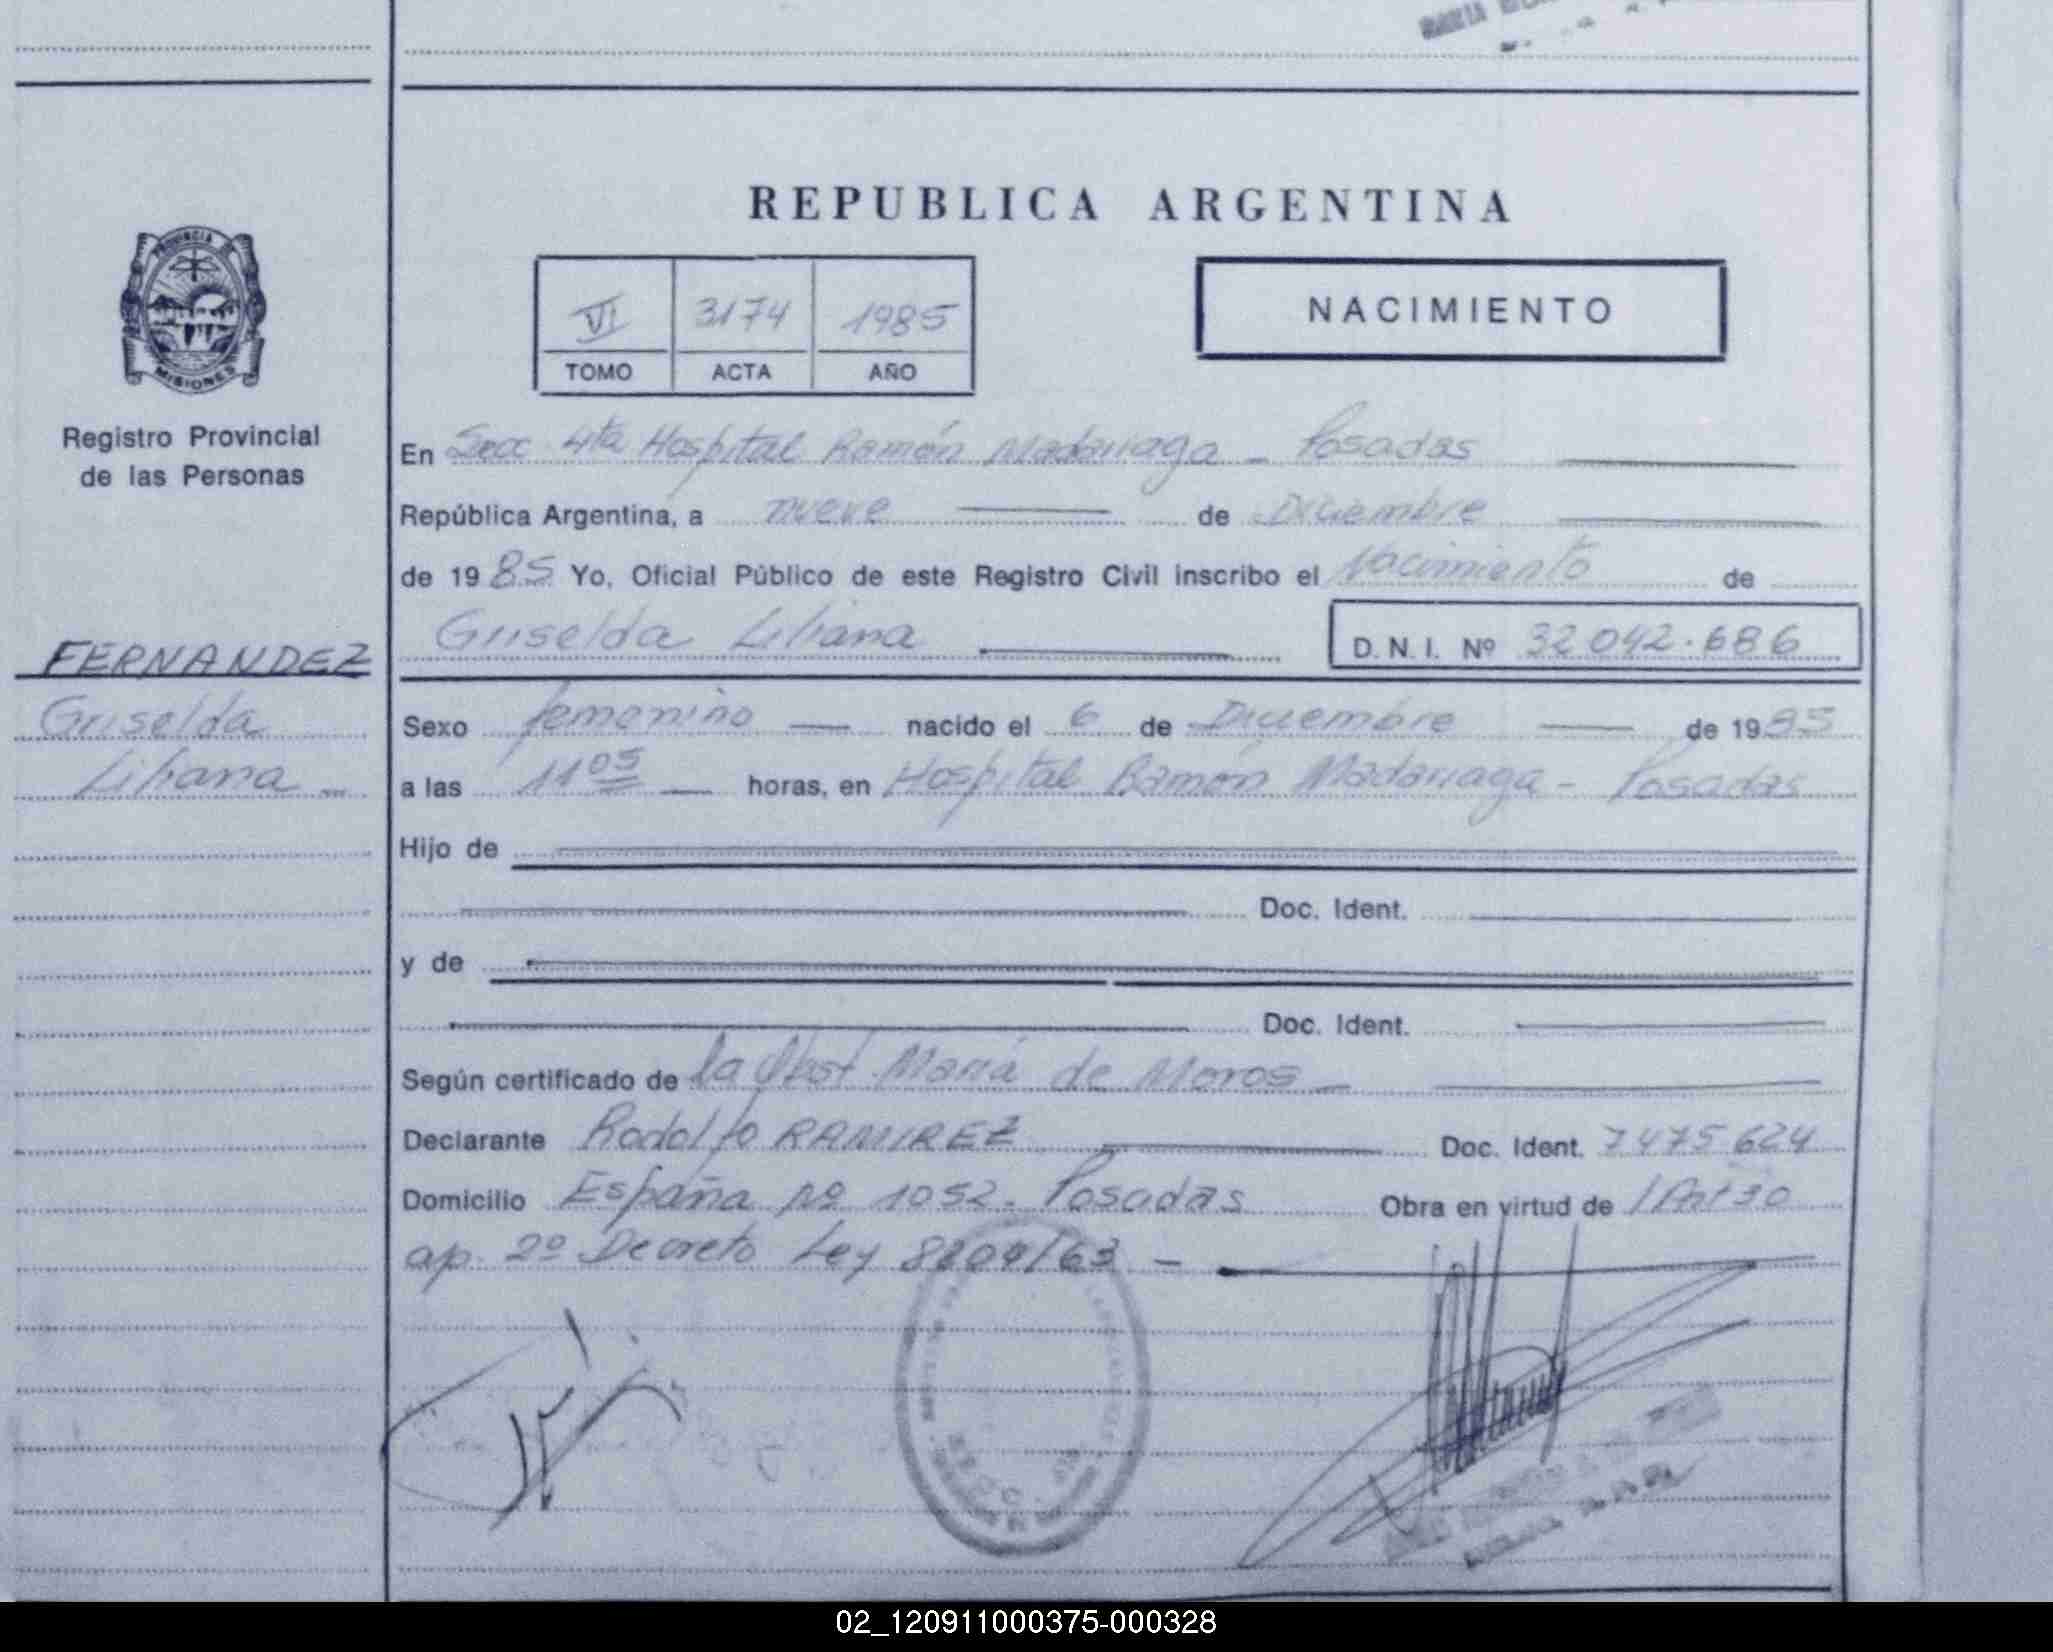 REPUBLICA ARGENTINA
PROVINCIA DE
MISIONES
VI 3174 1985
TOMO ACTA AÑO
NACIMIENTO
Registro Provincial
de las Personas
En Secc 4ta Hospital Ramón Madariaga - Posadas
República Argentina, a nueve de Diciembre
de 1985 Yo, Oficial Público de este Registro Civil inscribo el Nacimiento de
Griselda Liliana D.N.I. Nº 32042.686
FERNANDEZ
Griselda
Liliana
Sexo femenino nacido el 6 de Diciembre de 1985
a las 11 05 horas, en Hospital Ramón Madariaga - Posadas
Hijo de
Doc. Ident.
y de
Doc. Ident.
Según certificado de la Obst María de Moros
Declarante Rodolfo RAMIREZ Doc. Ident. 7475624
Domicilio España Nº 1052. Posadas Obra en virtud de Art 30
ap. 2º Decreto Ley 8204/63
02_120911000375-000328